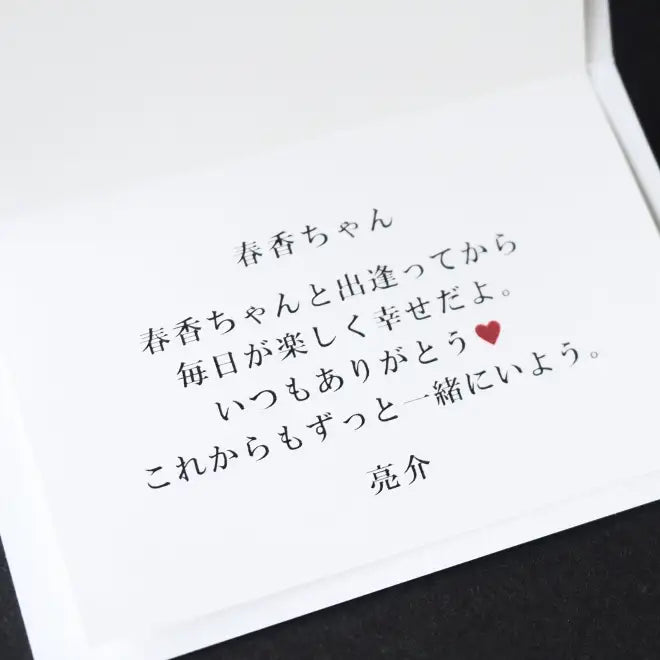 春香ちゃん
春香ちゃんと出逢ってから
毎日が楽しく幸せだよ。
いつもありがとう♥
これからもずっと一緒にいよう。
亮介